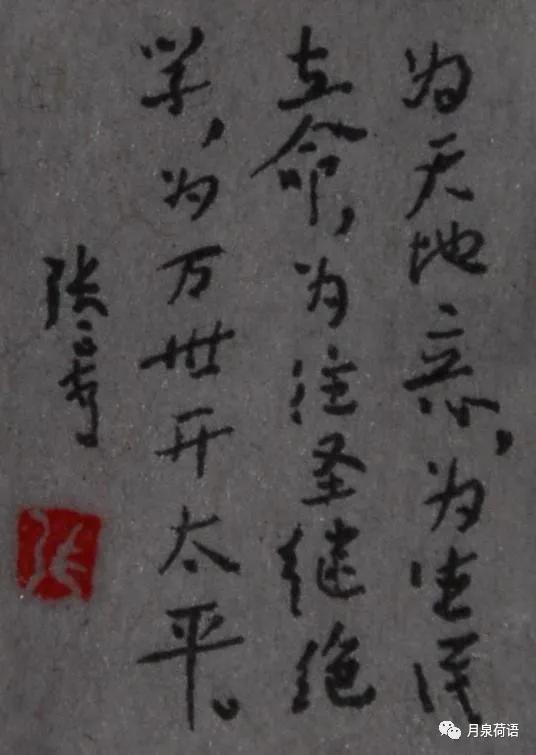 为天地立心，为生民
立命，为往圣继绝
学，为万世开太平。
张
张
月泉荷语